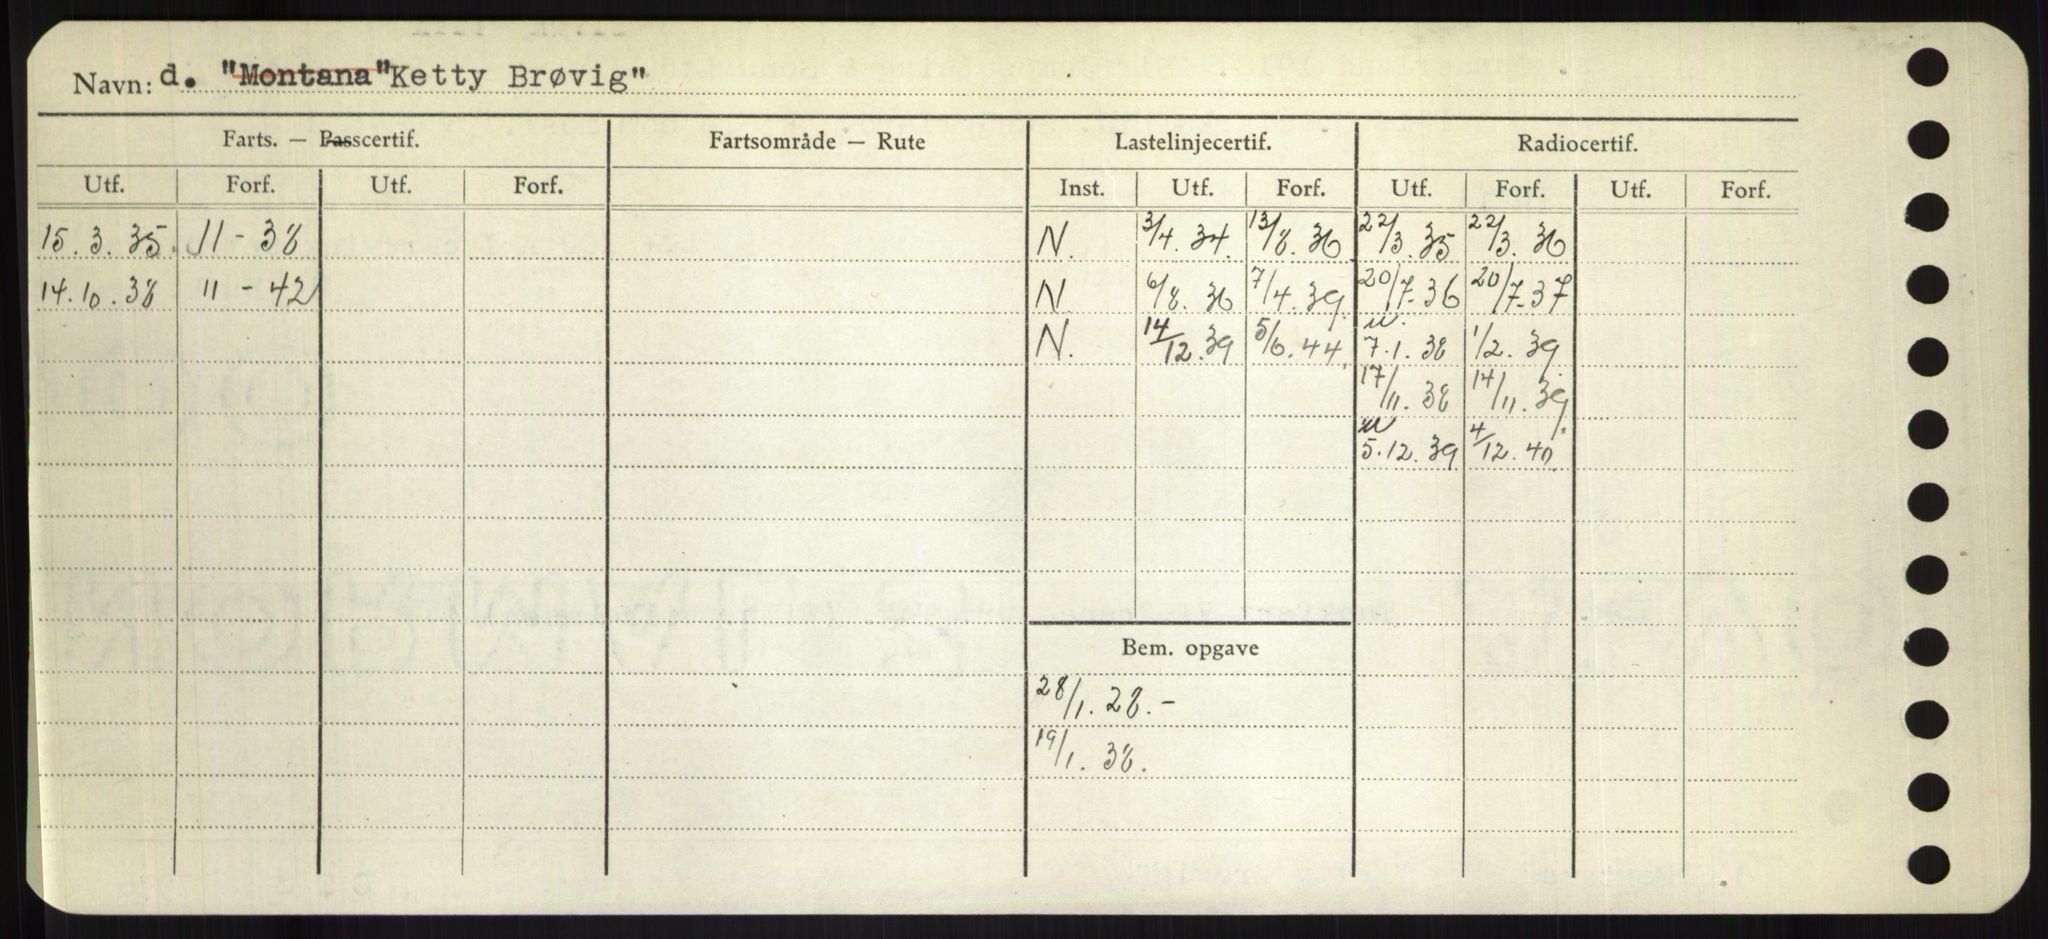 Navn: d. "Montana" Ketty Brøvig"
Farts. — Passcertif. Fartsområde — Rute Lastelinjecertif. Radiocertif.
Utf. Forf. Utf. Forf. Inst. Utf. Forf. Utf. Forf. Utf. Forf.
15.3.35. 11-38 N. 3/4.34. 13/8.36 22/3.35 22/3.36
14.10.38 11-42 N. 6/8.36 7/4.39. 20/7-36 20/7-37
N. 14/12.39 5/6.44. 7.1.38 1/2.39
17/11.38 14/11.39
5.12.39 4/12.40.
Bem. opgave
28/1.28.-
19/1.38.